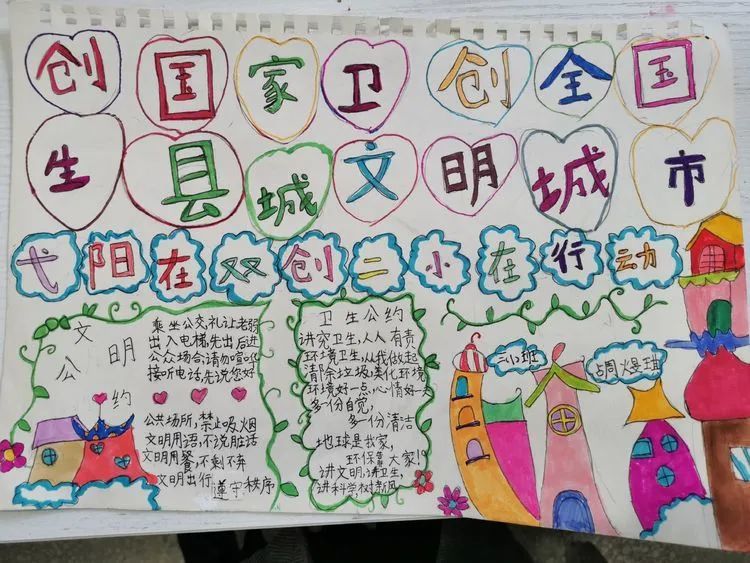 创国家卫创全国
生县城文明城市
弋阳在双创二小在行动
文明公约
乘坐公交,礼让老弱
出入电梯,先出后进
公众场合请勿喧哗
接听电话先说您好
公共场所,禁止吸烟
文明用语,不说脏话
文明用餐,不剩不弃
文明出行,遵守秩序
卫生公约
讲究卫生,人人有责
环境卫生,从我做起
清除垃圾,美化环境
环境好一点,心情好一天
多一份自觉,
多一份清洁
地球是我家,
环保靠大家!
讲文明,讲卫生,
讲科学,树新风